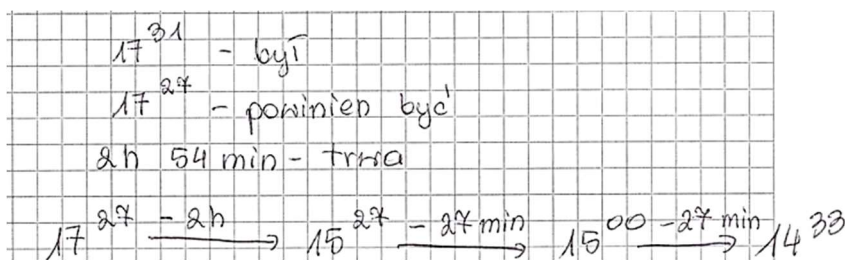 17³¹ - był
17²⁷ - powinien być
2h 54 min - trwa
17²⁷ - 2h → 15²⁷ - 27 min → 15⁰⁰ - 27 min → 14³³